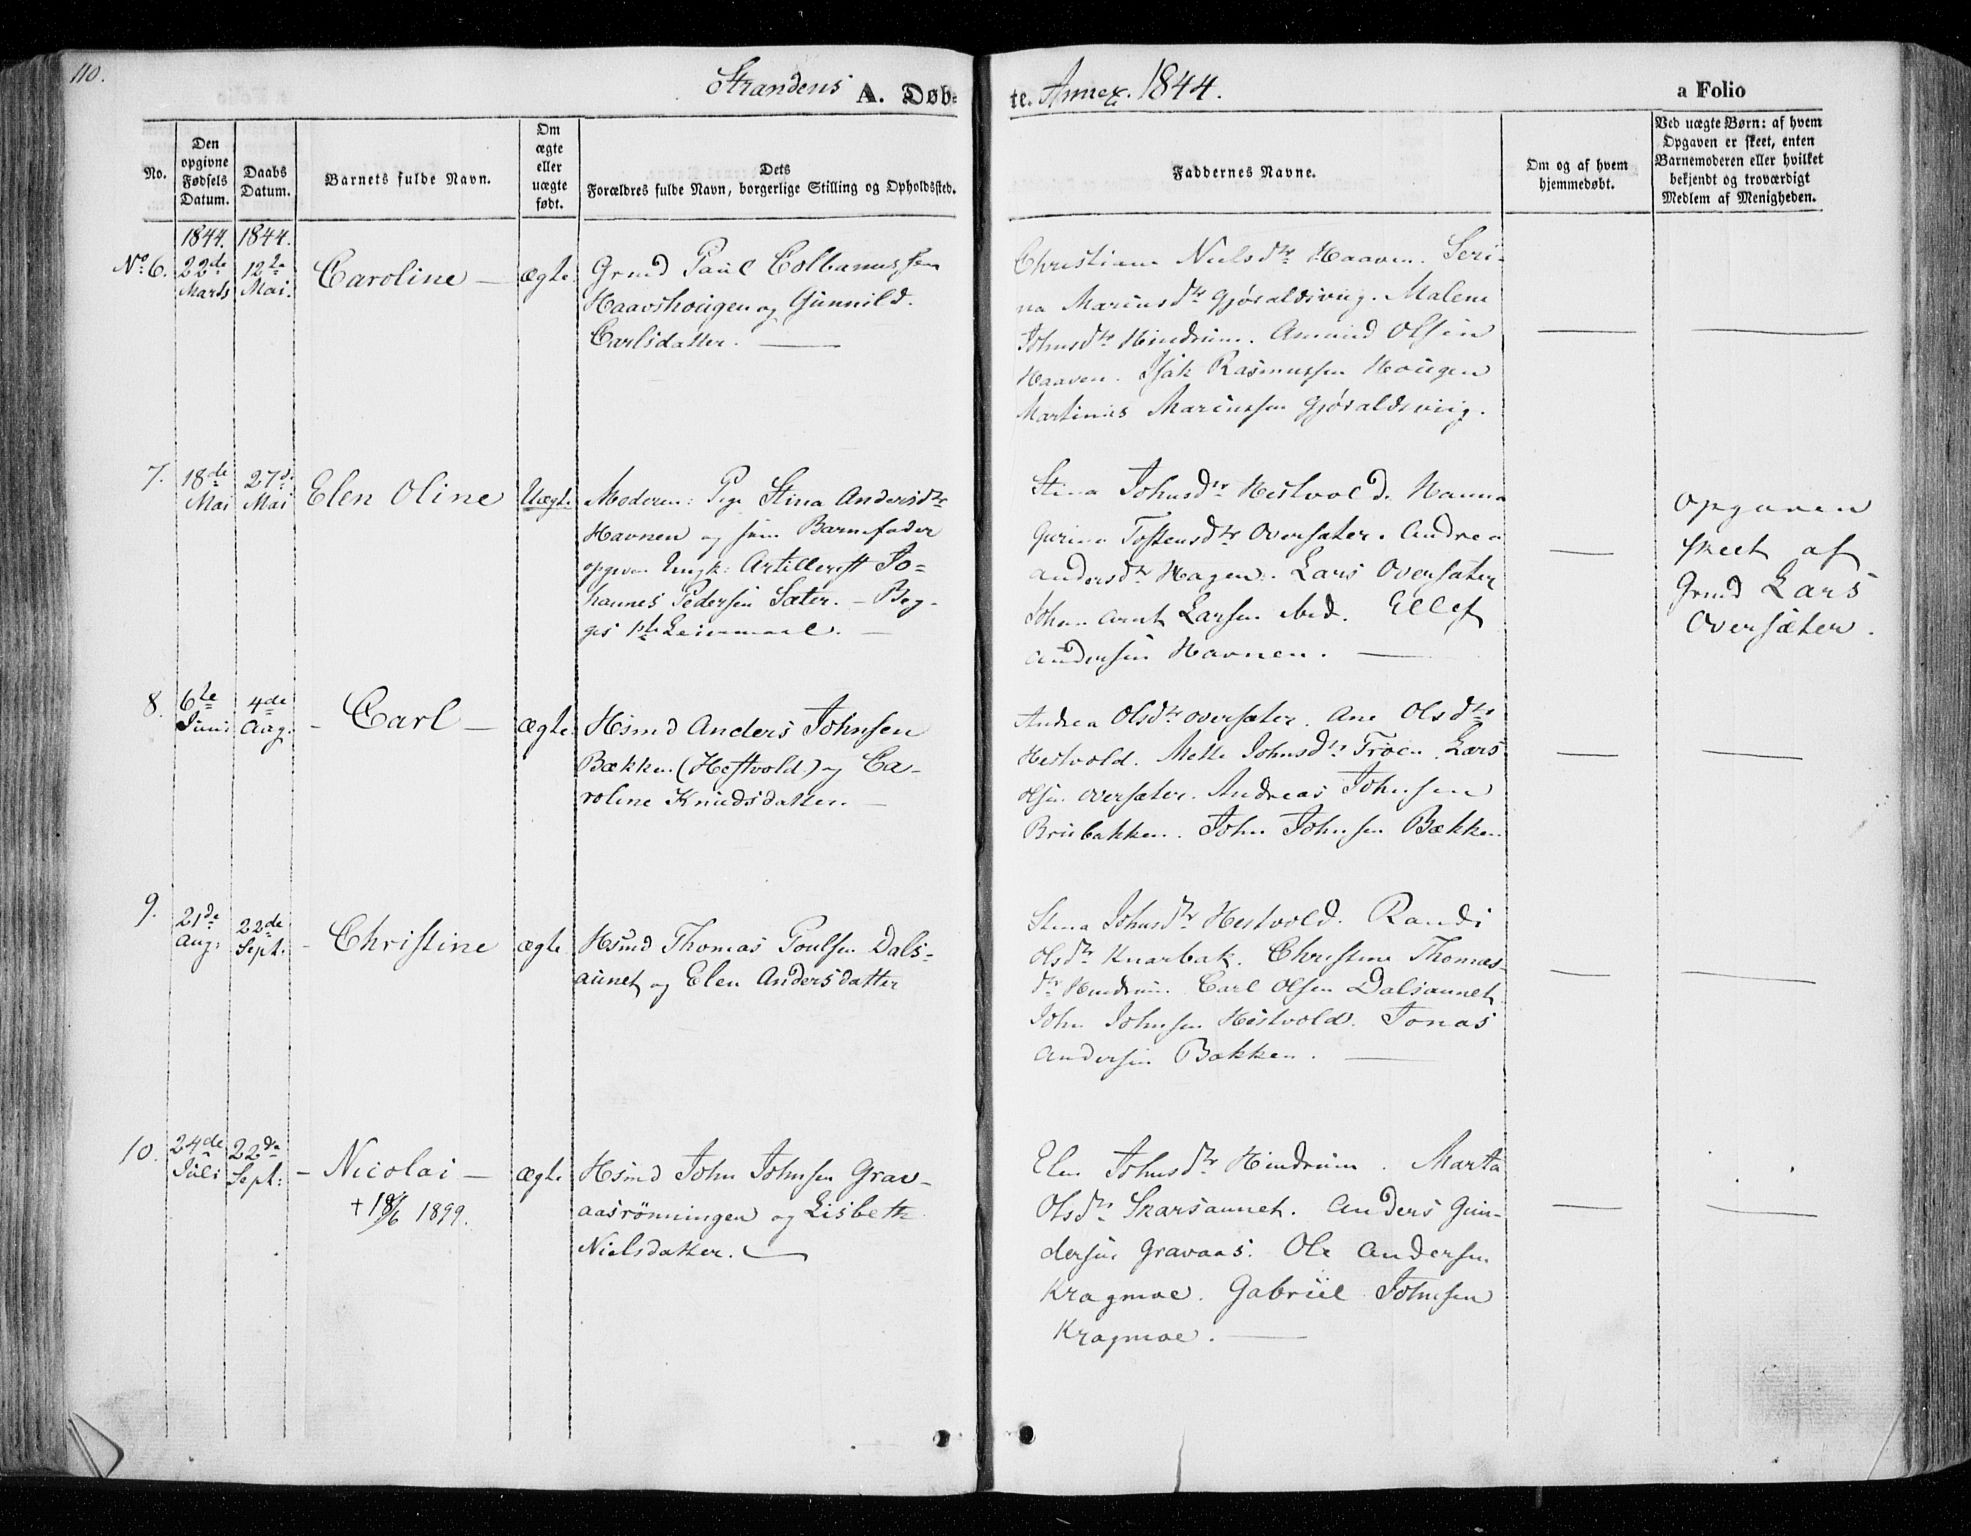 110.
Strandens A. Døb-
te. Annex. 1844.
a Folio
No.
Den
opgivne
Fødsels
Datum.
Daabs
Datum.
Barnets fulde Navn.
Om
ægte
eller
uægte
født.
Dets
Forældres fulde Navn, borgerlige Stilling og Opholdssted.
Faddernes Navne.
Om og af hvem
hjemmedøbt.
Ved uægte Børn: af hvem
Opgaven er skeet, enten
Barnemoderen eller hvilket
bekjendt og troværdigt
Medlem af Menigheden.
1844. 1844.
No 6.
22de
Marts
12te
Mai.
Caroline —
ægte
Grmd Paul Colbanussen
Haavshougen og Gunnild
Carlsdatter. —
Christiane Nielsdtr Haaven. Seri-
na Mariusdtr Gjøraldsviig. Malene
Johnsdtr Hindrum. Amund Olsen
Haaven. Isak Rasmussen Hougen
Martinus Mariussen Gjøraldsviig.
7.
18de
Mai
27de
Mai
Elen Oline
Uægte.
Moderen: Pige Stina Andersdtr
Havnen og som Barnefader
opgiven Ungk: Artillerist Jo-
hannes Pedersen Sæter. — Beg-
ges 1ste Leiermaal. —
Stina Johnsdtr Hestvold. Hanna
Gurina Tostensdtr Oversæter. Andrea
Andersdtr Hagen. Lars Oversæter
John Arnt Larsen ibid. Ellef
Andersen Havnen. —
Opgaven
skeet af
Grmd Lars
Oversæter.
8.
6te
Juni
4de
Aug.
- Carl —
ægte.
Hsmd Anders Johnsen
Bækken (Hestvold) og Ca-
roline Knudsdatter. —
Andrea Olsdtr Oversæter. Ane Olsdtr
Hestvold. Mette Johnsdtr Trøen. Lars
Olsen Oversæter. Andreas Johnsen
Bruebakken. John Johnsen Bækken
9.
21de
Aug:
22de
Sept:
- Christine
ægte
Hsmd Thomas Poulsen Dals-
aunet og Elen Andersdatter
Stina Johnsdtr Hestvold. Randi
Olsdtr Knarbak. Christine Thomas-
dtr Hindrum. Carl Olsen Dalsaunet
John Johnsen Hestvold. Jonas
Andersen Bakken. —
10.
24de
Juli
22de
Sept:
- Nicolai —
+ 18/6 1899.
ægte
Hsmd John Johnsen Grav-
aasrönningen og Lisbeth
Nielsdatter. —
Elen Johnsdtr Hindrum. Marta
Olsdtr Skarsaunet. Anders Gun-
dersen Gravaas. Ole Andersen
Kragmoe. Gabriel Johnsen
Kragmoe. —